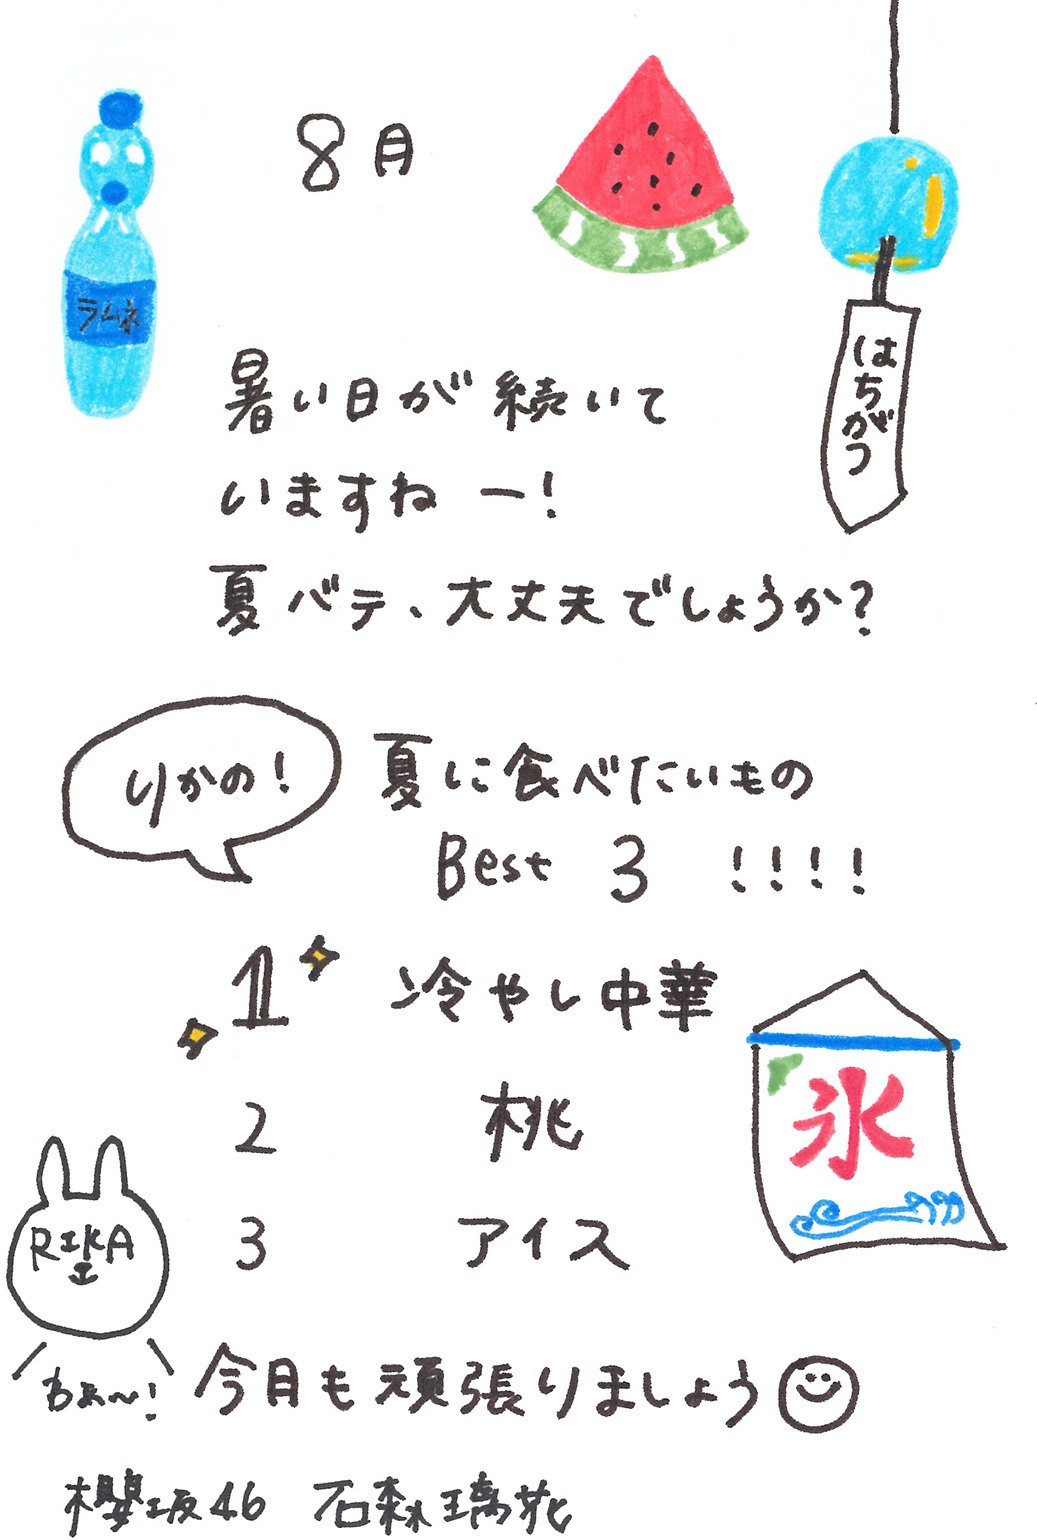 8月
ラムネ
はちがつ
暑い日が続いて
いますねー!
夏バテ、大丈夫でしょうか?
りかの!
夏に食べたいもの
Best 3 !!!!
1 冷やし中華
2 桃
3 アイス
氷
RIKA
もぉ〜!
今月も頑張りましょう
櫻坂46 石森璃花